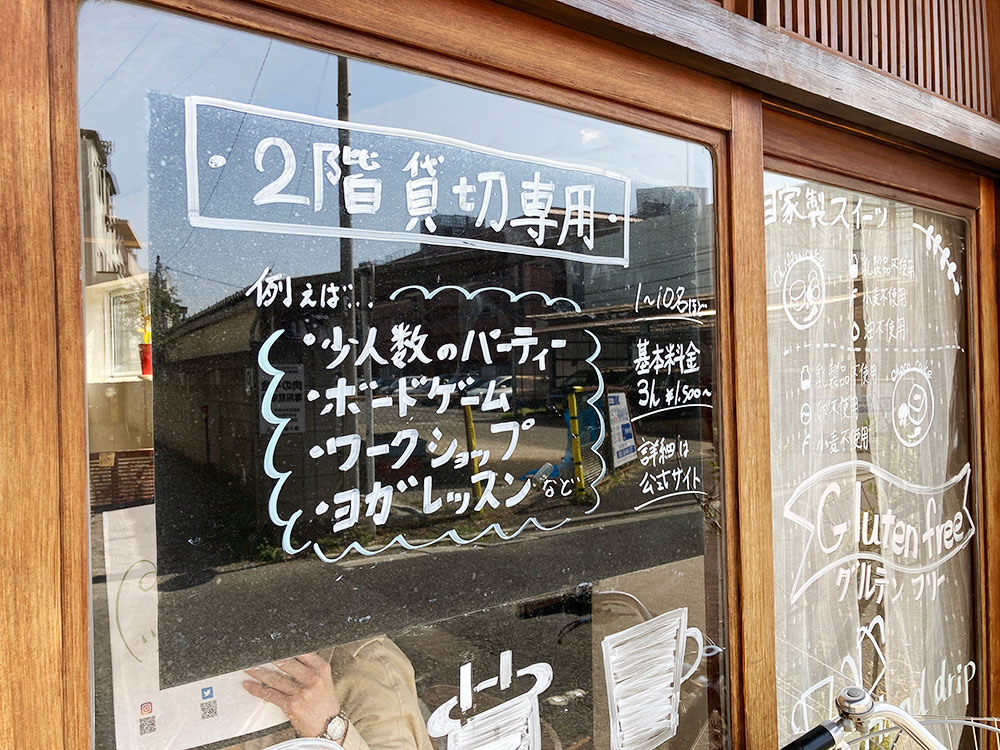 2階貸切専用
例えば...
・少人数のパーティー
・ボードゲーム
・ワークショップ
・ヨガレッスン など
1~10名ほど
基本料金
3h ¥1,500~
詳細は
公式サイト
自家製スイーツ
乳製品不使用
小麦不使用
卵不使用
乳製品不使用
卵不使用
小麦不使用
Gluten free
グルテンフリー
drip